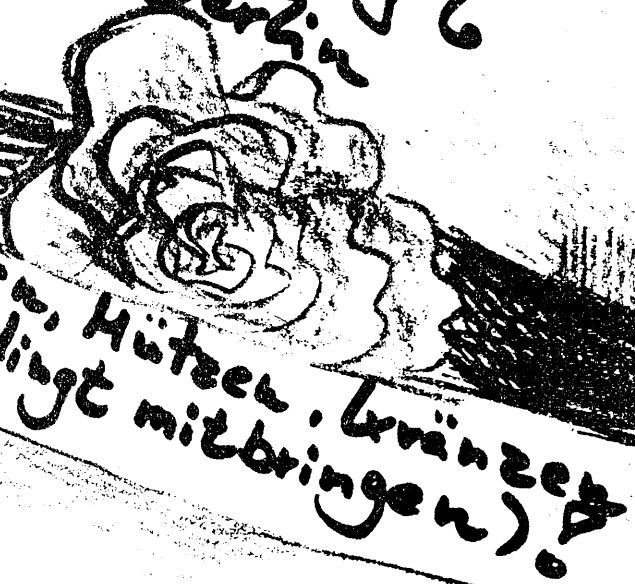 Berlin
n, Mützen, Kränzen
dingt mitbringen)!